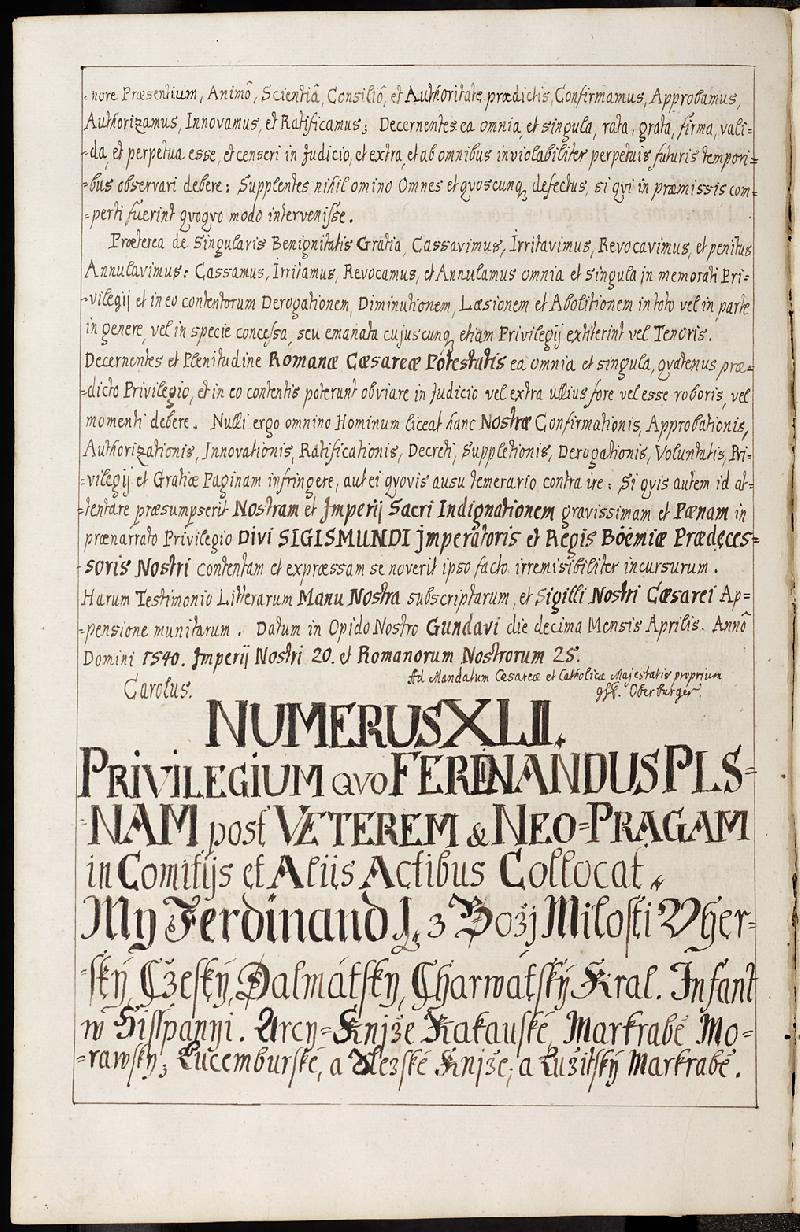 -nore Præsentium, Animô, Scientiâ, Consiliô, et Authoritate prædictis, Confirmamus, Approbamus,
Authorizamus, Innovamus, et Ratificamus; Decernentes ea omnia, et singula, rata, grata, firma, vali-
-da, et perpetua esse, et censeri in Judicio, et extra, et ab omnibus inviolabiliter perpetuis futuris tempori-
-bus observari debere: Supplentes nihil omino Omnes et quoscunq, defectus, si qvi in præmissis com-
-perti fuerint qvoqvo modo intervenisse.
Præterea de Singularis Benignitatis Gratia, Cassavimus, Irritavimus, Revocavimus, et penitus
Annulavimus: Cassamus, Irritamus, Revocamus, et Annulamus omnia et singula in memorati Pri-
-vilegij et in eo contentorum Derogationem, Diminutionem, Læsionem et Abolitionem in toto vel in parte
in genere, vel in specie concessa, seu emanata cujuscunq, etiam Privilegij extiterint vel Tenoris.
Decernentes et Plenitudine Romanæ Cæsareæ Potestatis ea omnia et singula, qvatenus præ-
-dicto Privilegio, et in eo contentis poterunt obviare in Judicio vel extra ullius fore vel esse roboris, vel
momenti debere. Nulli ergo omnino Hominum liceat hanc Nostræ Confirmationis, Approbationis,
Authorizationis, Innovationis, Ratificationis, Decreti, Suppletionis, Derogationis, Voluntatis, Pri-
-vilegij et Gratiæ Paginam infringere, aut ei qvovis ausu temerario contra ire: Si qvis autem id at-
-tentare præsumpserit Nostram et Imperij Sacri Indignationem gravissimam et Pænam in
prænarrato Privilegio Divi SIGISMUNDI Jmperatoris et Regis Boëmiæ Prædeces-
-soris Nostri contentam et expræssam se noverit ipso facto irremisibiliter incursurum.
Harum Testimonio Litterarum Manu Nostra subscriptarum, et Sigilli Nostri Cæsarei Ap-
-pensione munitarum. Datum in Opido Nostro Gundavi die decima Mensis Aprilis. Annô
Domini 1540. Jmperij Nostri 20. et Romanorum Nostrorum 25.
Ad Mandatum Cesareæ et Catholicæ Majestatis proprium
Carolus. Oberburger
NUMERUS XLII.
PRIVILEGIUM qvo FERDINANDUS PLS-
-NAM post VETEREM & NEO-PRAGAM
in Comitijs et Aliis Actibus Collocat.
My Ferdinand I. z Bozj Milosti Vher-
-ský, Czeský, Dalmátský, Charwatský Kral. Infant
w Hisspanyi. Arcy-Knjže Rakauské, Markrabě Mo-
-rawský, Lucemburské, a Slezské Knjže, a Lužitský Markrabě.